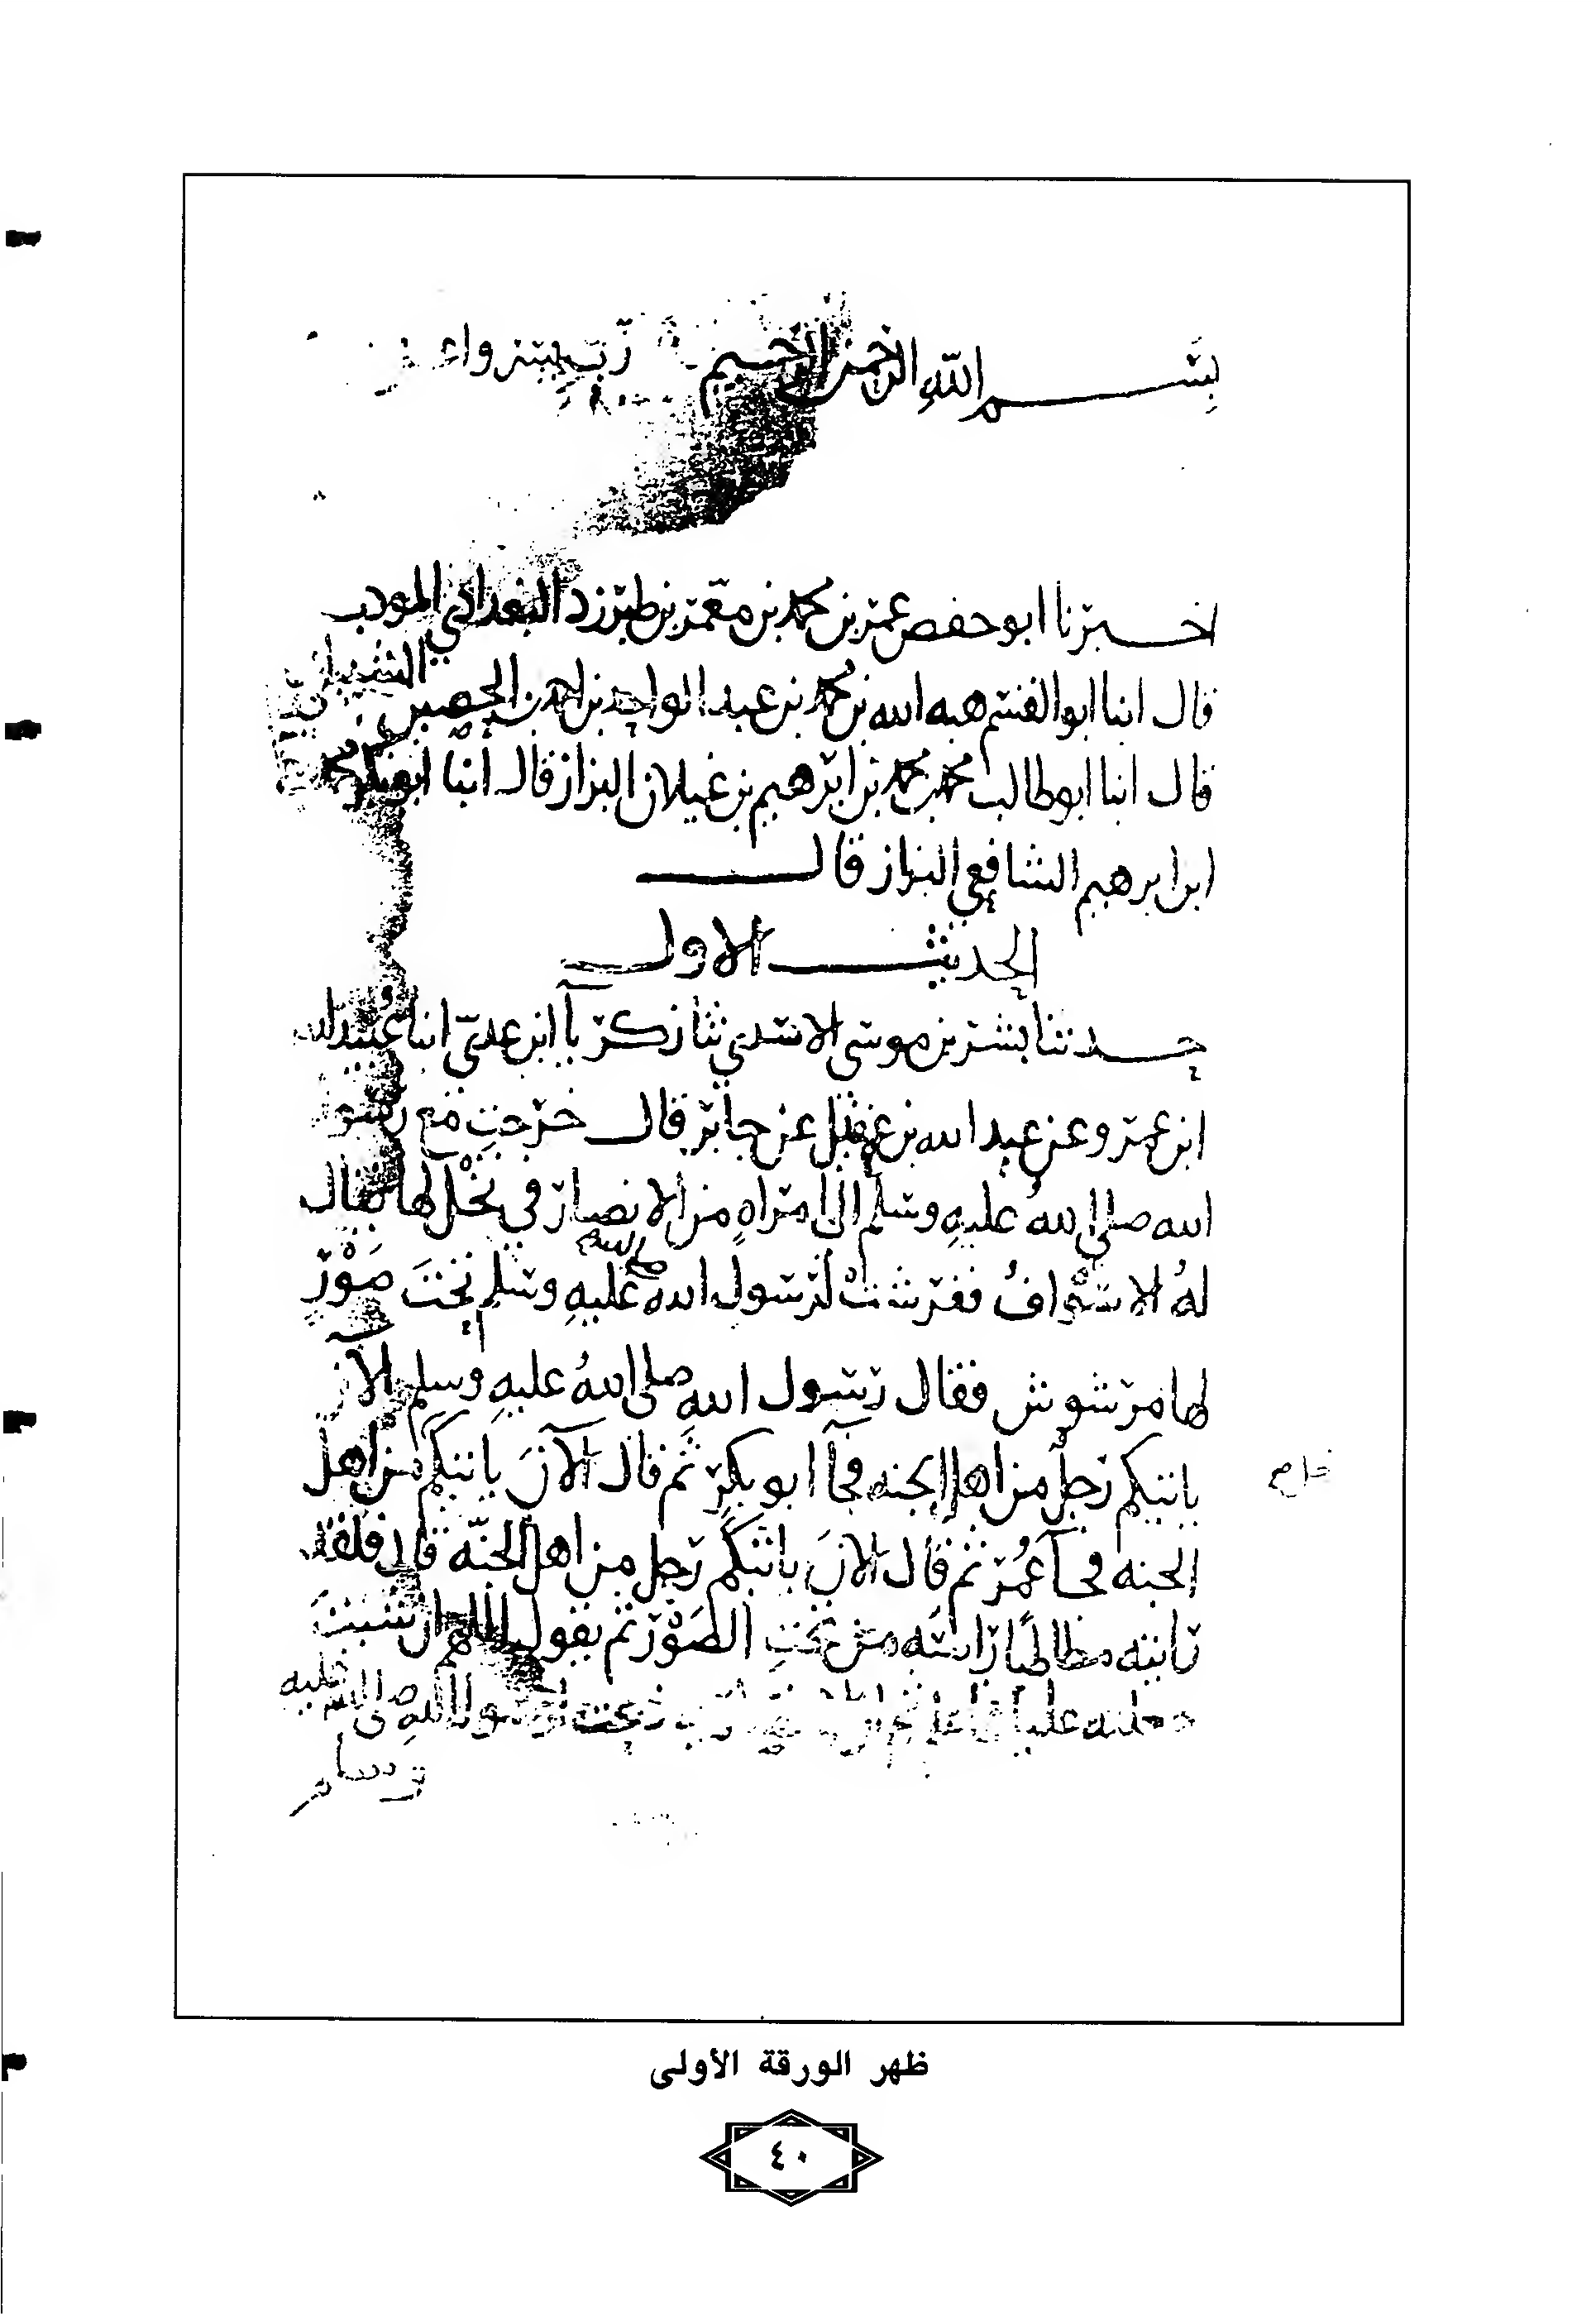 بسم الله الرحمن الرحيم رب يسر واعن
اخبرنا ابو حفص عمر بن محمد بن معمر بن طبرزد البغدادي المودب
قال انبا ابو القسم هبه الله بن محمد بن عبد الواحد بن احمد بن الحصين الشيباني
قال انبا ابو طالب محمد بن محمد بن ابرهيم بن غيلان البزاز قال انبا ابو بكر محمد
ابن ابرهيم الشافعي البزاز قال
الحديث الاول
حدثنا بشر بن موسى الاسدي ثنا زكريآ ابن عدي انبا عبيد الله
ابن عمرو عن عبد الله بن عقيل عن جابر قال خرجت مع رسول
الله صلى الله عليه وسلم الى امراه من الانصار في نخل لها يقال
له الاسواف ففرشت لرسول الله صلى الله عليه وسلم تحت صور
لها مرشوش فقال رسول الله صلى الله عليه وسلم الآن
ياتيكم رجل من اهل الجنه فجآ ابو بكر ثم قال الآن ياتيكم من اهل
الجنه فجآ عمر ثم قال الآن ياتيكم رجل من اهل الجنه قال فلقد
رايته مطاطيا راسه من تحت الصور ثم يقول اللهم ان شيت
جعلته عليا فجا علي ثم ان لرسول الله صلى الله عليه
وسلم
ظهر الورقة الأولى
٤٠